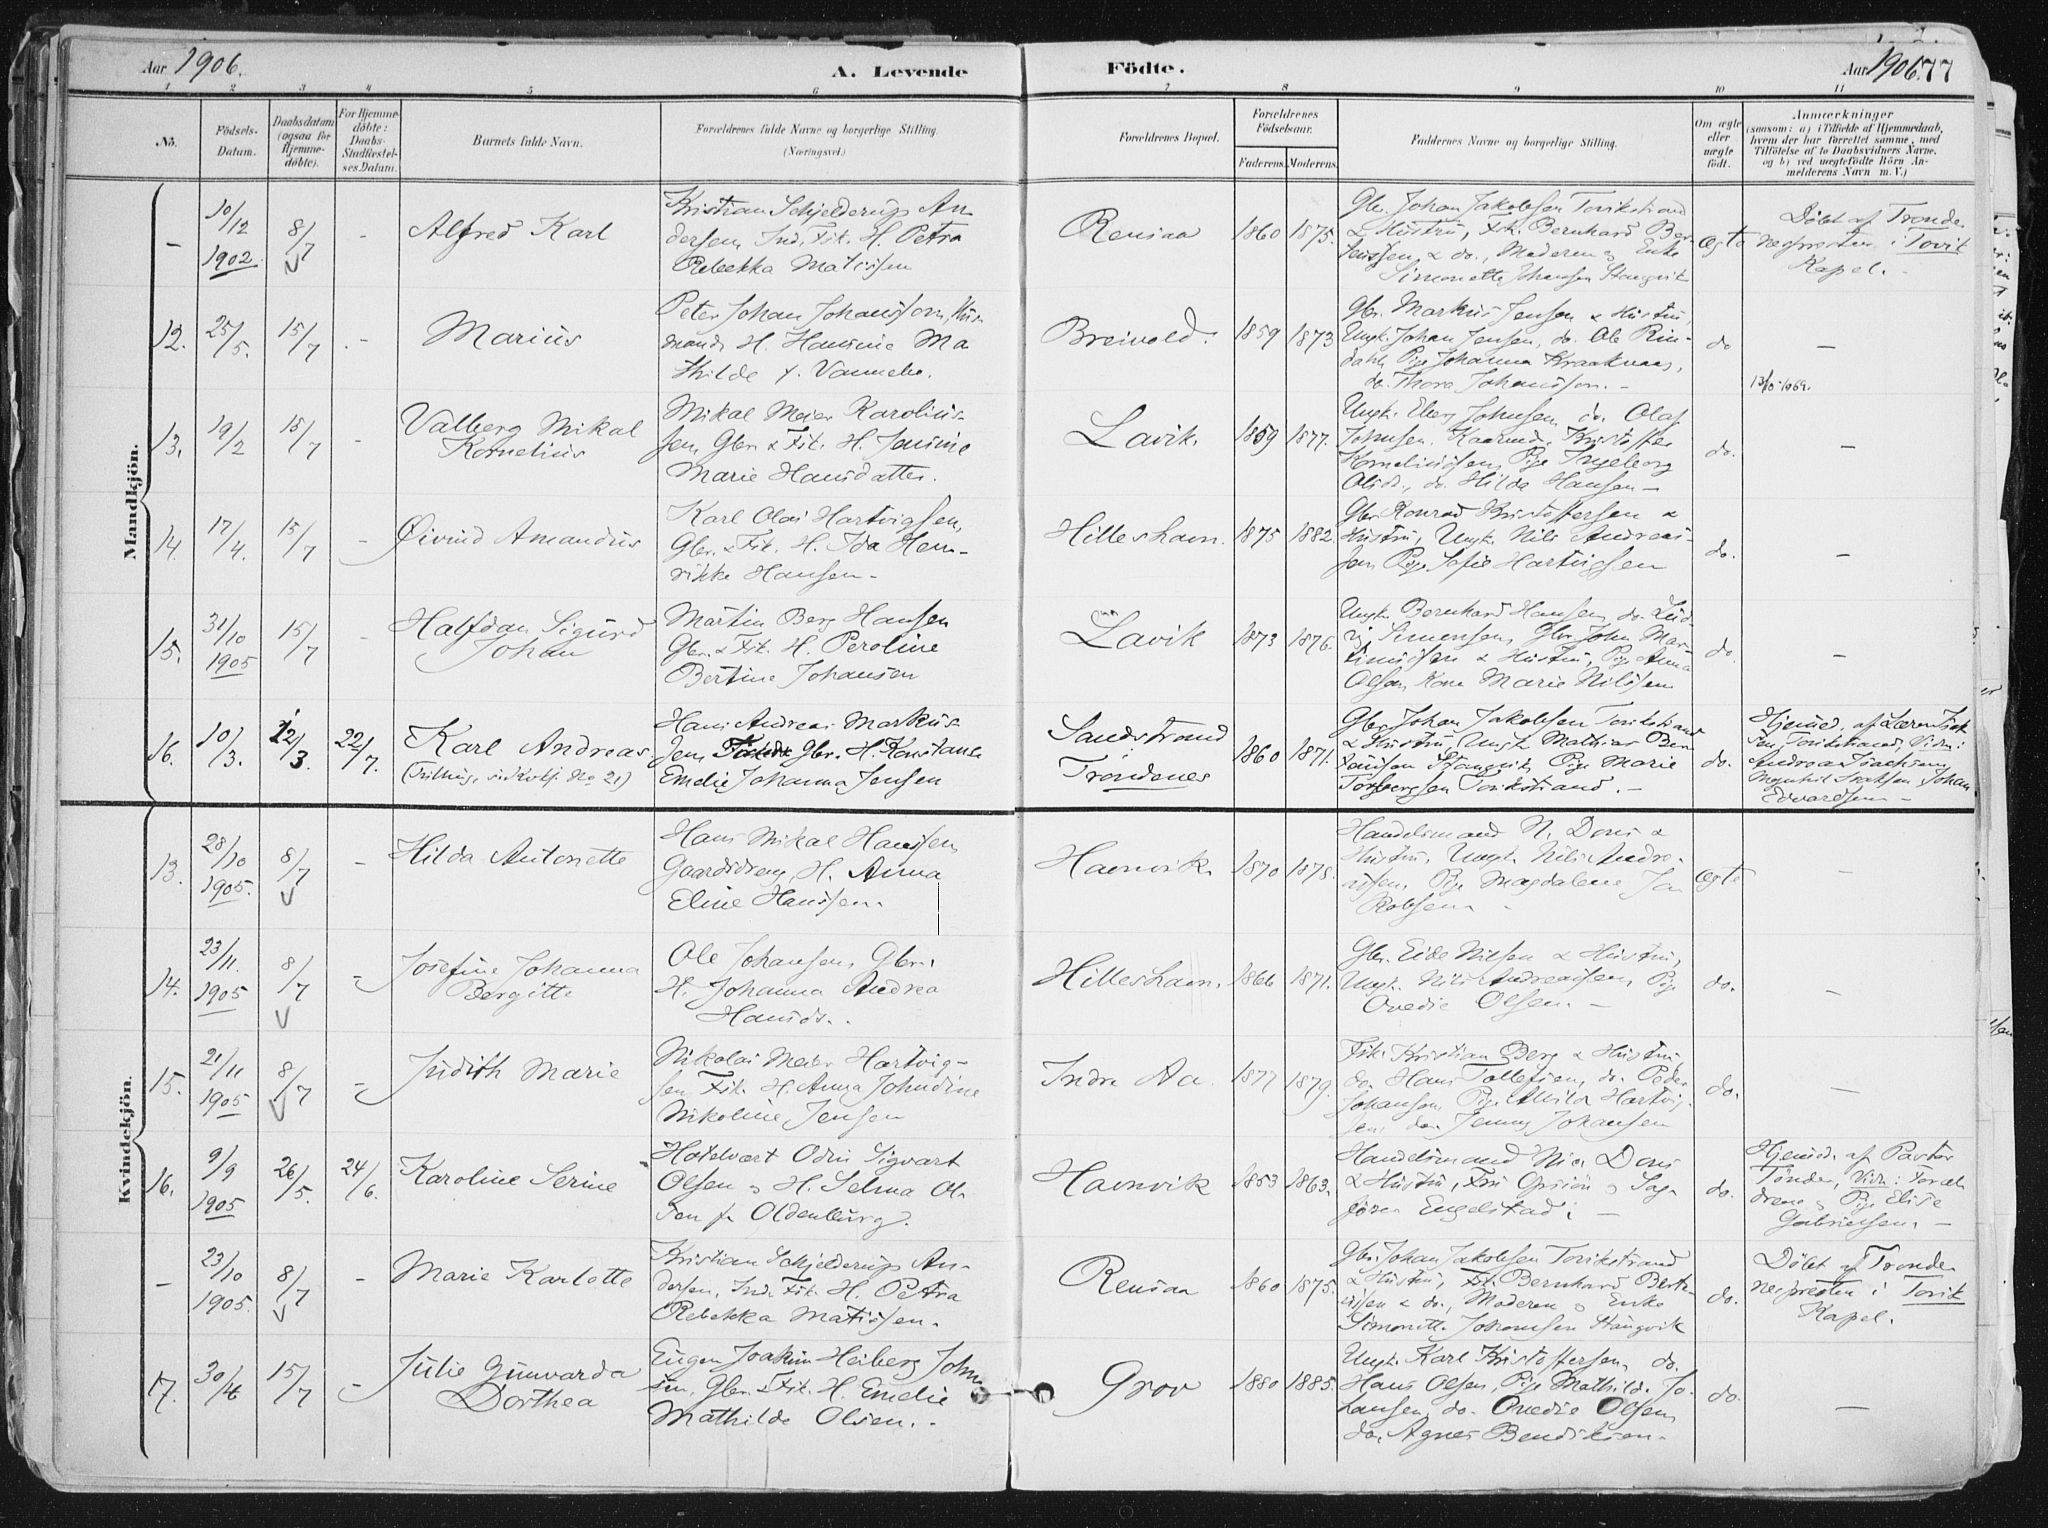 Aar 1906. A. Levende Födte. Aar 1906. 77
1 2 3 4 5 6 7 8 9 10 11
No. Födsels-Datum. Daabsdatum (ogsaa for Hjemmedöbte). For Hjemmedöbte: Daabs-Stadfæstelses Datum. Barnets fulde Navn. Forældrenes fulde Navne og borgerlige Stilling. (Næringsvei.) Forældrenes Bopæl. Forældrenes Födselsaar. Faderens. Moderens. Faddernes Navne og borgerlige Stilling. Om ægte eller uægte födt. Anmærkninger (saasom: a) i Tilfælde af Hjemmedaab, hvem der har forrettet samme, med Tilföielse af to Daabsvidners Navne, og b) ved uægtefödte Börn Anmelderens Navn m. V.)
Mandkjön.
- 10/12 1902 8/7 - Alfred Karl
Kristian Schjelderup An
dersen, Ind. Fsk. H. Petra
Rebekka Matissen
Rensaa 1860 1875.
Gbr. Johan Jakobsen Torikstrand
& Hustru, Fsk. Bernhard Ber
& do., Moderen og Enke
Simonette Johansen Stangvik
ægte
Döbt af Tronde
nespresten i Tovik
Kapel.
12. 25/5. 15/7 - Marius
Peter Johan Johansson, Hus
mand, H. Hansine Ma
thilde f.
Breivold. 1859 1873
Gbr. Markus Jensen & Hustru,
Ungk. Johan Jensen, do. Ole Rin-
dahl, Pige Johanna Kraaknæs,
do. Thora Johansson. -
do - 13/10-1069.
13. 19/2 15/7 - Valberg Mikal
Kornelius
Mikal Meier Karolius-
sen, Gbr. & Fsk. H. Jensine
Marie Hansdatter.
Lavik. 1859 1877.
Ungk. Eberg Johnsen, do. Olaf
Johnsen, Kristoffer
Korneliussen, Pige Ingeborg
Olsd., do. Hilda Hansen -
do. -
14. 17/4. 15/7 - Øivind Amandus
Karl Olai Hartvigsen,
Gbr. & Fsk. H. Ida Hen-
rikke Hansen -
Hilleshavn. 1875 1882.
Gbr. Konrad Kristoffersen &
Hustru, Ungk. Nils Andreas-
sen, Pige Sofie Hartvigsen
do. -
15. 31/10 1905 15/7 - Halfdan Sigurd
Johan
Martin Berg Hansen
Gbr. & Fsk. H. Peroline
Bertine Johansen
Lavik 1873 1876.
Ungk. Bernhard Hansen, do. Lud
vig Simonsen, Gbr. John Mar-
tinussen & Hustru, Pige Anna
Olsen, Kone Marie Nilssen
do. -
16. 10/3. 12/3 22/7. Karl Andreas
(Trilling, se Kvkj. No 21)
Hans Andreas Markus-
sen, Gbr. H. Konstanse
Emelie Johanna Jensen
Sandstrand
Trondenes
1860 1871.
Gbr. Johan Jakobsen Torikstrand
& Hustru, Ungk. Mathias Bern
tsen Stangvik, Pige Marie
Torbergsen Torikstrand. -
do.
Hjemmed. af Lærer Isak
sen, Torikstrand, Vidn:
Andrea Joachimsen
Magnhil Isaksen, Johan
Edvardsen -
Kvindekjön.
13. 28/10 1905. 8/7 - Hilda Antonette
Hans Mikal Hanssen,
Gaardsdreng, H. Anna
Eline Hanssen.
Havnvik. 1870 1878.
Handelsmand N. Doris &
Hustru, Ungk. Nils Andre-
assen, Pige Magdalene Ja
kobsen.
ægte -
14. 23/11. 1905 8/7 - Josefine Johanna
Bergitte
Ole Johansen, Gbr.
H. Johanna Andrea
Hansd.
Hilleshavn. 1866 1871.
Gbr. Eide Nilsen & Hustru,
Ungk. Nils Andreassen, Pige
Ovedie Olsen. -
do. -
15. 21/11 1905 8/7 - Judith Marie
Nikolai Meier Hartvig-
sen, Fsk. H. Anna Johndine
Nikoline Jensen
Indre Aa. 1877 1879.
Fsk. Kristian Berg & Hustru,
do. Hans Tollefsen, do. Peder
Johansen, Pige Alvilda Hartvig-
sen, do. Jenny Johansen
do. -
16. 9/9 1905 26/5. 24/6. Karoline Serine
Hotelvært Odin Sigvart
Olsen og H. Selma Ol-
sen f. Oldenburg.
Havnvik 1853 1863.
Handelsmand Nic. Doris
& Hustru, Fru og
Engelstad. -
do.
Hjemmd. af Pastor
Tönder, Vidn:
og Pige Elise
Gabrielsen. -
- 23/10 1905. 8/7 - Marie Karlotte
Kristian Schjelderup An-
dersen, Ind. Fsk. H. Petra
Rebekka Matissen.
Rensaa 1860 1875.
Gbr. Johan Jakobsen Torikstrand
& Hustru, Fsk. Bernhard Bernt
& do., Moderen og Enke
Simonette Johansen Stangvik
do.
Döbt af Tronde
nespresten i Tovik
Kapel.
17. 30/4 15/7 - Julie Gunvarda
Dorthea
Eugen Joakim Heiberg John
sen, Gbr. & Fsk. H. Emelie
Mathilde Olsen.
Grov 1880 1885.
Ungk. Karl Kristoffersen, do.
Hans Olsen, Pige Mathilde Jo-
hansen, do. Ovedie Olsen,
do. Agnes Bendiksen.
do. -